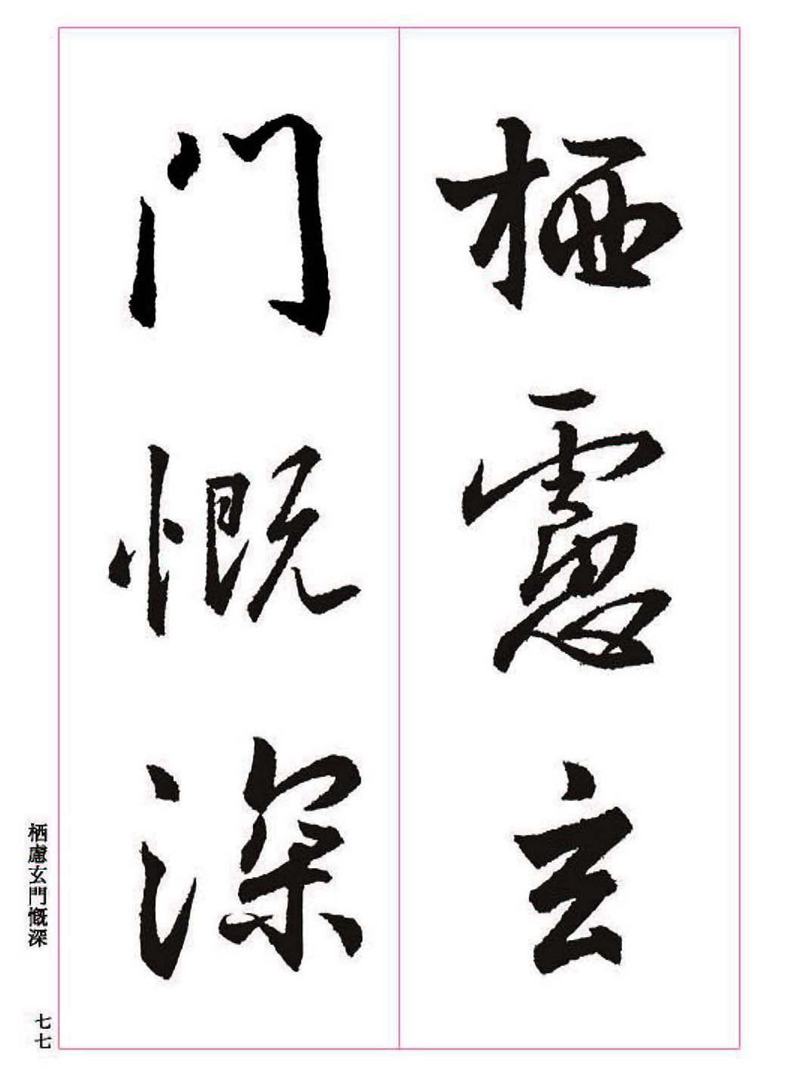 栖慮玄
门慨深
栖慮玄門慨深
七七